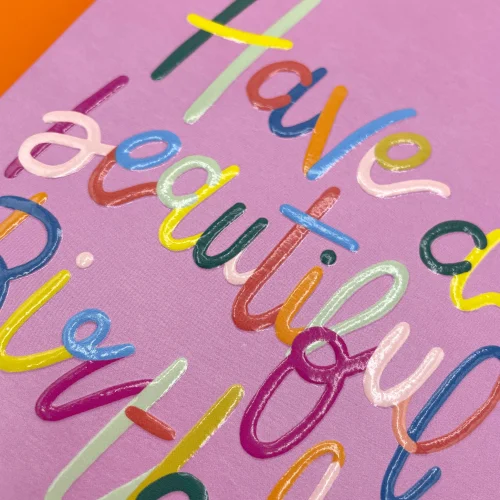 Have a
Beautiful
Birthda